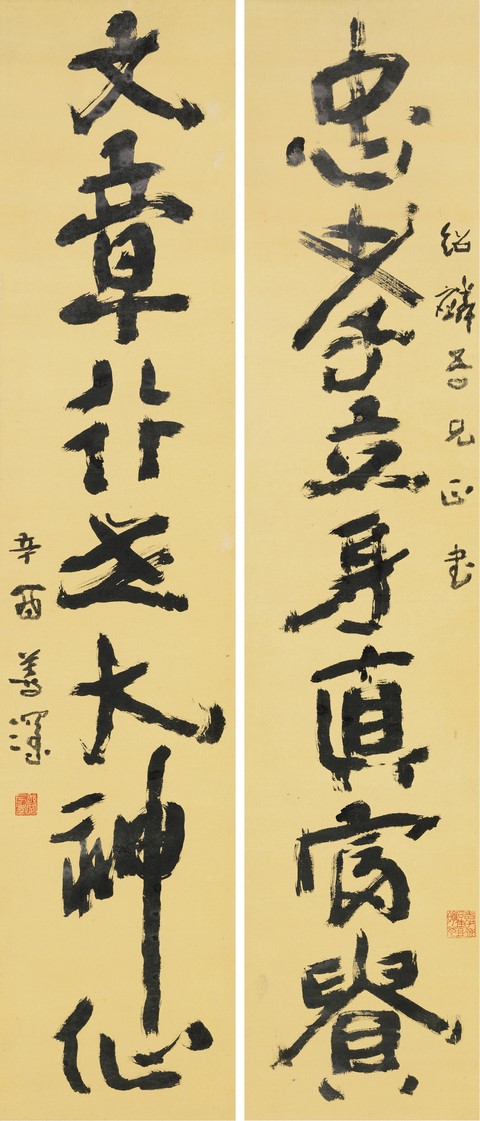 忠孝立身真富貴
紹吾兄正書
文章行世大神仙
辛酉善深